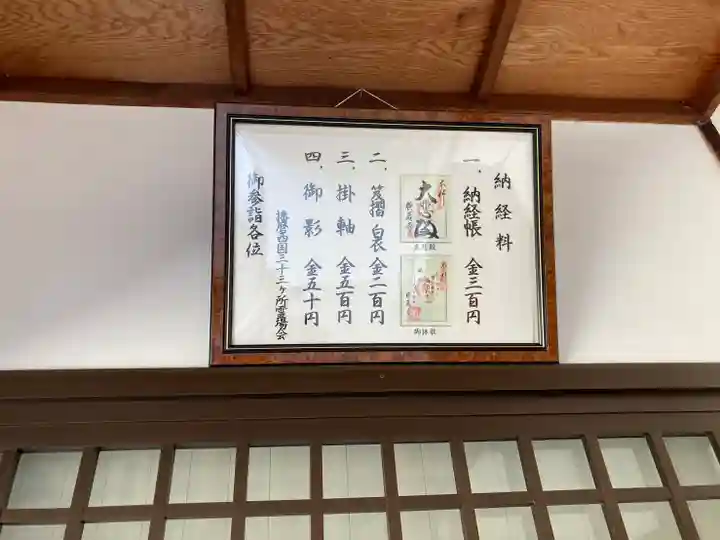 納経料
一、納経帳 金三百円
御詠歌
二、笈摺白衣金二百円
三、掛軸 金五百円
四、御影 金五十円
播磨西国三十三ヶ所霊場会
御参詣各位